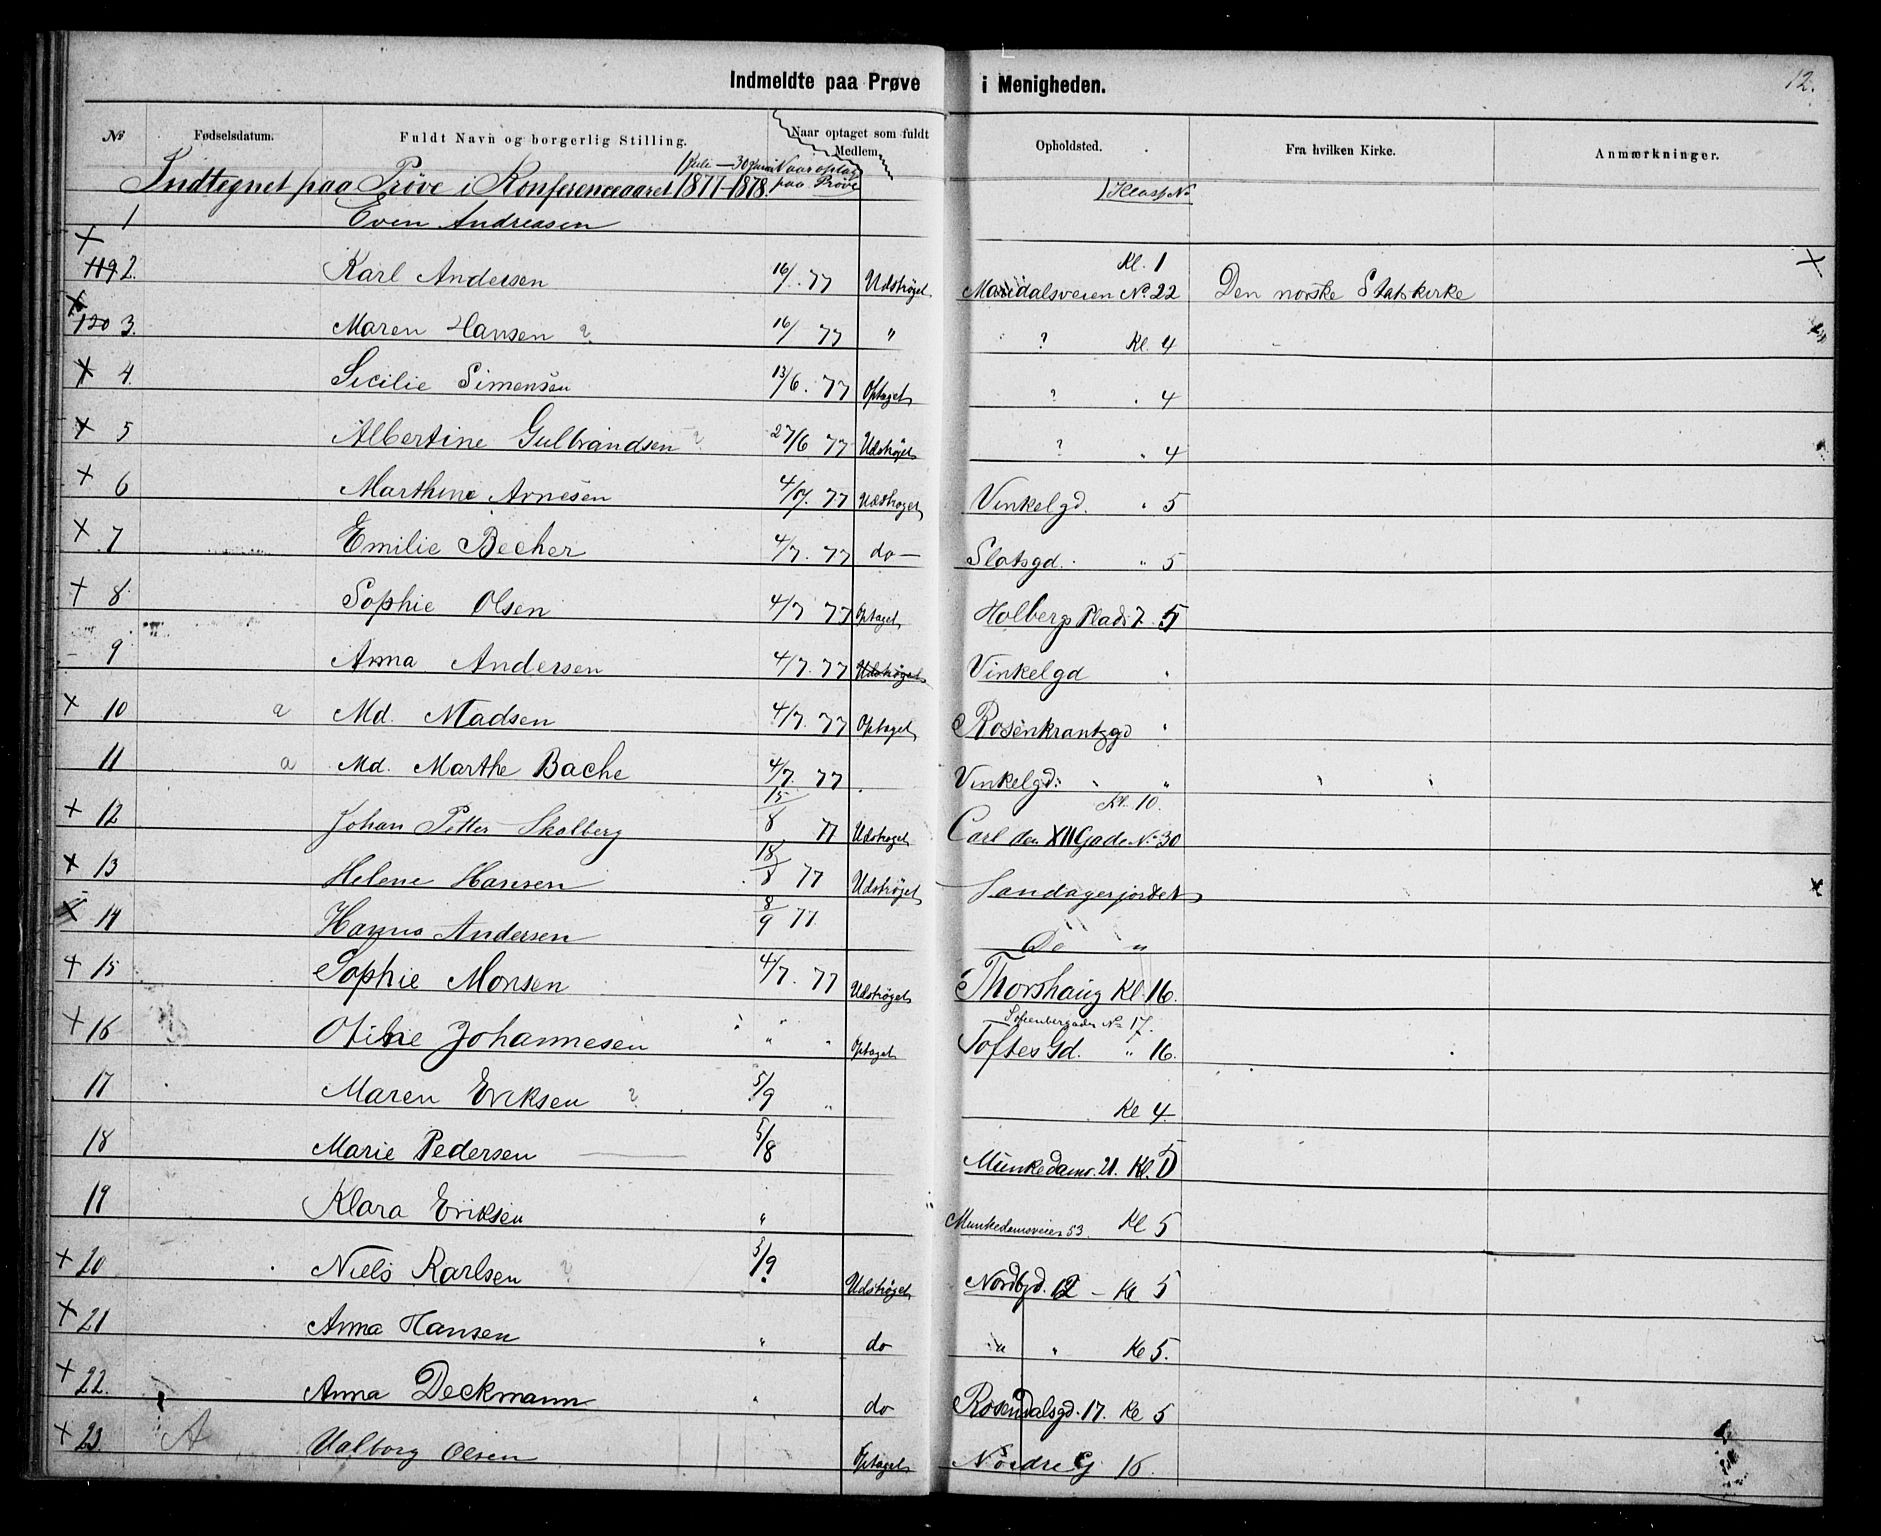 Indmeldte paa Prøve i Menigheden. 12.
№ Fødselsdatum. Fuldt Navn og borgerlig Stilling. Naar optaget som fuldt Medlem. Opholdsted. Fra hvilken Kirke. Anmærkninger.
1 Juli — 30 Juni Naar optag paa Prøve
Indtegnet paa Prøve i Konferenceaaret 1877-1878. Klasse №
1 Even Andreasen
119 2. Karl Andersen 16/ 77 Udstrøget Maridalsveien No 22 Kl. 1 Den norske Statskirke
120 3. Maren Hansen ? 16/ 77 " ? Kl. 4
4. Sicilie Simensen 13/6. 77 Optaget ? " 4
5 Albertine Gulbrandsen ? 27/6 77 Udstrøget ? " 4
6 Marthine Arnesen 4/7. 77 Udstrøget Vinkelgd. " 5
7 Emilie Becher 4/7. 77 do — Slotsgd. " 5
8 Sophie Olsen 4/7 77 Optaget Holbergs Plads 7. 5
9 Anna Andersen 4/7. 77 Udstrøget Vinkelgd "
10 a Md. Madsen 4/7 77 Optaget Rosenkrantzgd "
11 a Md. Marthe Bache 4/7. 77 Vinkelgd: "
12 Johan Petter Skolberg 15/8 77 Udstrøget Carl den XII Gade No 30 Kl. 10.
13 Helene Hansen 18/8 77 Udstrøget Sandagerjordet
14 Hanna Andersen 8/9 77 Do "
15 Sophie Monsen 4/7. 77 Udstrøget Thorshaug Kl. 16.
Sofienbergaden No 17.
16 Otilie Johannesen " " Optaget Toftes Gd. " 16.
17 Maren Eriksen ? 5/9 " Kl 4
18 Marie Pedersen 5/8 Munkedamsv. 21. Kl. 5
19 Klara Eriksen " Munkedamsveien 53. Kl 5
20 Niels Karlsen ? 5/9 Udstrøget Nordbgd. 12 – Kl 5
21 Anna Hansen " do " " Kl 5.
22. Anna Deckmann " do Rosendalsgd. 17. Kl 5
23. A Valborg Olsen Optaget Nordre G 16.